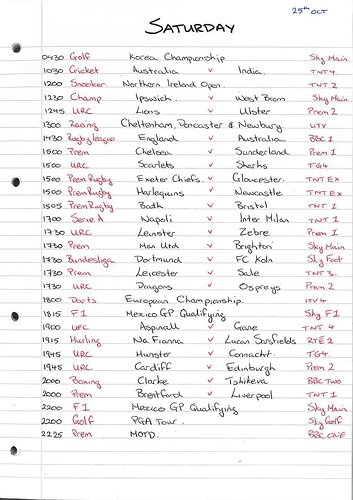 25th OCT
SATURDAY
0430 Golf Korea Championship Sky Main
1030 Cricket Australia v India. TNT 4
1200 Snooker Northern Ireland Open. TNT 2
1230 Champ Ipswich. v West Brom Sky Main
1245 URC Lions v Ulster Prem 2
1300 Racing Cheltenham, Doncaster & Newbury UTV
1430 Rugby League England v Australia BBC 1
1500 Prem Chelsea v Sunderland Prem 1
1500 URC Scarlets v Sharks TG4
1500 Prem Rugby Exeter Chiefs. v Gloucester. TNT EX
1500 Prem Rugby Harlequins v Newcastle TNT EX
1505 Prem Rugby Bath v Bristol TNT 1
1700 Serie A Napoli v Inter Milan TNT 1
1730 URC Leinster v Zebre Prem 1
1730 Prem Man Utd v Brighton Sky Main
1730 Bundesliga Dortmund v FC Koln Sky Foot
1730 Prem Leicester v Sale TNT 3.
1730 URC Dragons v Ospreys Prem 2
1800 Darts European Championship. ITV4
1815 F1 Mexico GP Qualifying Sky F1
1900 UFC Aspinall v Gane TNT 4
1915 Hurling Na Fianna v Lucan Sarsfields RTE 2
1945 URC Munster v Connacht. TG4.
1945 URC Cardiff v Edinburgh Prem 2
2000 Boxing Clarke v Tshikeva BBC TWO
2000 Prem Brentford v Liverpool TNT 1
2200 F1 Mexico GP Qualifying Sky Main
2200 Golf PGA Tour. Sky Golf
2225 Prem MOTD. BBC ONE